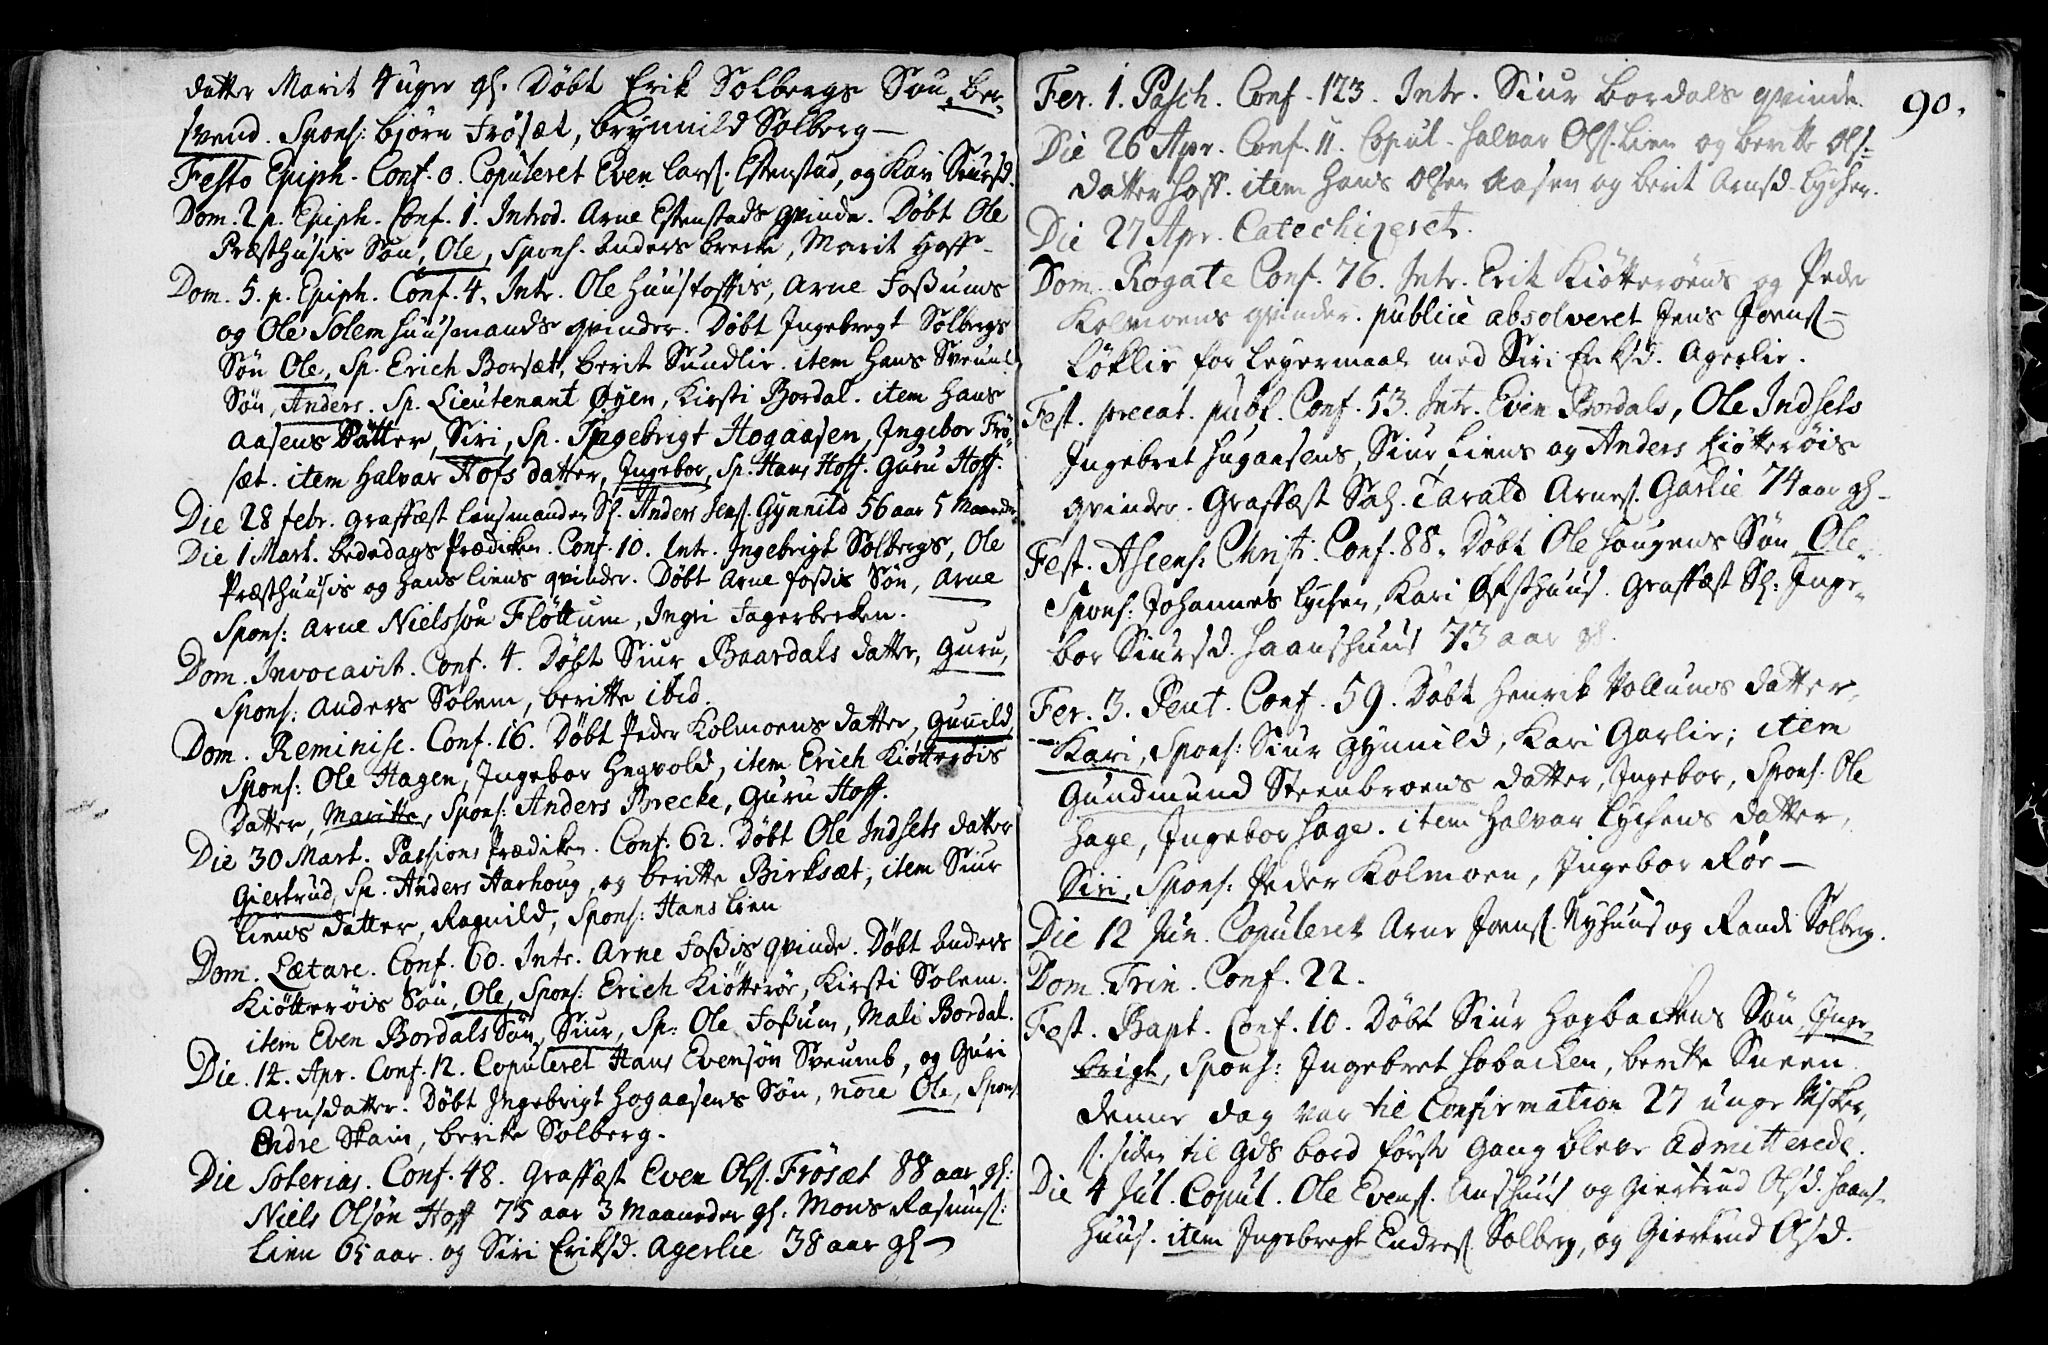 datter Marit 4 uger gl. Døbt Erik Solbergs Søn, Ber-
svend. Spons: Bjørn Frøsæt, Brynnild Solberg –
Festo Epiph. Conf. 0. Copuleret Even Lars. Estenstad, og Kari Siursd.
Dom. 2 p. Epiph. Conf. 1. Introd. Arne Estenstads qvinde. Døbt Ole
Præsthusis Søn, Ole, Spons. Anders Brecke, Marit Hoff –
Dom. 5. p. Epiph. Conf. 4. Intr. Ole Huustoftis, Arne Foßums
og Ole Solem huusmands qvinder. Døbt Ingebregt Solbergs
Søn Ole, Sp. Erich Borsætt, Berit Sundlie. item Hans Sveuml.
Søn, Anders. Sp. Lieutenant Øyen, Kirsti Bordal. item Hans
Aasens Datter, Siri, Sp. Ingebrigt Hogaasen, Ingebor Frø-
sæt. item Halvar Hofs datter, Ingebor, Sp. Hans Hoff. Guru Hoff.
Die 28 febr. graffæst lensmanden Sl. Anders Jens. Gynnild 56 aar 5 Maaneder
Die 1 Mart. Bededags Prædiken. Conf. 10. Intr. Ingebrigt Solbergs, Ole
Præsthuusis og Hans Liens qvinder. Døbt Arne Foßis Søn, Arne
Spons: Arne Nielssøn Fløttum, Ingri Fagerbecken.
Dom. Invocavit. Conf. 4. Døbt Siur Baardals datter, Guru,
Spons: Anders Solem, Beritte ibid.
Dom. Reminisc. Conf. 16. Døbt Peder Kolmoens datter, Gunild
Spons: Ole Hagen, Ingebor Hegvold, item Erich Kiøtterøis
Datter, Maritte, Spons: Anders Brecke, Guru Hoff.
Die 30 Mart. Passions Prædiken. Conf: 62. Døbt Ole Indsets datter
Giertrud, Sp. Anders Aarhoug, og Beritte Birksæt, item Siur
Liens datter, Ragnild, Spons: Hans Lien
Dom. Lætare. Conf. 60. Intr. Arne Foßis qvinde. Døbt Anders
Kiøtterøis Søn, Ole, Spons: Erich Kiøtterøe, Kirsti Solem.
item Even Bordals Søn, Siur, Sp: Ole Foßum, Mali Bordal.
Die. 14. Apr. Conf. 12. Copuleret Hans Evensøn Sveumb, og Guri
Arnsdatter. Døbt Ingebrigt Hogaasens Søn, noie Ole, Spons
Endre Skain, Berite Solberg.
Die Soterias. Conf. 48. Graffæst Even Ols. Frøsæt 88 aar gl:
Niels Olsøn Hoff 75 aar 3 Maaneder gl. Mons Rasmuss:
Lien 65 aar. og Siri Eriksd. Agerlie 38 aar gl –
90.
Fer. 1. Pasch. Conf. 123. Intr. Siur Bordals qvinde.
Die 26 Apr. Conf. 11. Copul. Halvar Ols. Lien og Beritte Ols=
datter Hoff. item Hans Olsen Aasen og Berit Arnsd. Lychen.
Die 27 Apr. Catechizeret.
Dom. Rogate Conf. 76. Intr. Erik Kiøtterøens og Peder
Kolmoens qvinder. publice absolveret Jens Joens.
Løklie for Leyermaal med Siri Eriksd. Agerlie.
Fest. precat. publ. Conf. 53. Intr. Even Bordals, Ole Indsets
Ingebret Hugaasens, Siur Liens og Anders Kiøtterøis
qvinder. Graffæst Sal. Tarald Arnes. Garlie 74 aar gl –
Fest. Ascens: Christi. Conf. 88. Døbt Ole Haugens Søn Ole.
Spons: Johannes Lychen, Kari Østhuus. Graffæst Sl: Inge-
bor Siursd. Haanshuus 73 aar gl.
Fer. 3. Pent. Conf. 59. Døbt Henrik Vollums datter,
Kari, Spons: Siur Gynnild, Kari Garlie; item
Gundmund Steenbroens datter, Ingebor, Spons. Ole
Hage, Ingebor Hage. item Halvar Lychens datter,
Siri, Spons: Peder Kolmoen, Ingebor Røe –
Die 12 Jun. Copuleret Arne Joens. Nyhuus og Randi Solberg.
Dom. Trin. Conf. 22.
Fest. Bapt. Conf. 10. Døbt Siur Hogbackens Søn, Inge-
brigt, Spons: Ingebret Hobacken, Beritte Sneen
denne dag var til Confirmation 27 unge Visker,
s. siden til Gds bord første Gang bleve admitterede.
Die 4 Jul. Copul. Ole Evens. Aushuus og Giertrud Olsd. Haans-
huus. item Ingebregt Endres. Solberg, og Giertrud Olsd.